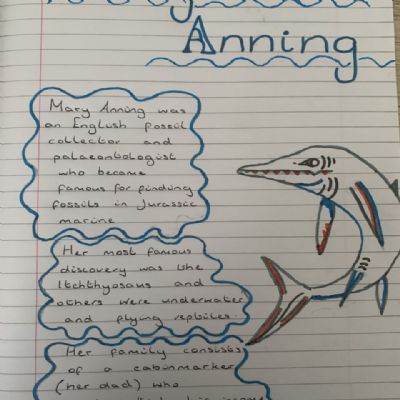 Anning
Mary Anning was
an English fossil
collector and
palaeontologist
who became
famous for finding
fossils in Jurassic
marine
Her most famous
discovery was the
Itchthyosaus and
others were underwater
and flying reptiles.
Her family consists
of a cabinmarker
(her dad) who